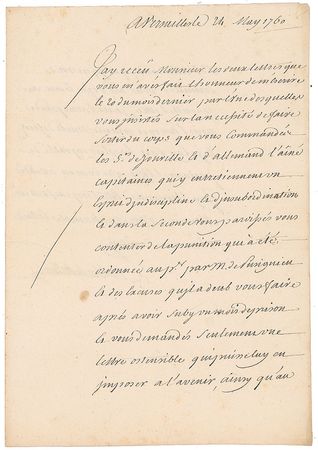 A Versailles le 24 May 1760
J'ay receu Monsieur les deux lettres que
vous m'avés fait l'honneur de m'ecrire
le 20 du mois dernier par l'une desquelles
vous insistés sur la necessité de faire
sortir du corps que vous commandés
les S.rs de Jouvelle et d'allemand l'ainé
capitaines qui y entretiennent un
esprit d'indiscipline et d'insubordination
et dans la seconde vous paroissés vous
contenter de la punition qui a été
ordonnée au p.er par M. de
et des excuses qu'il a deub vous faire
aprés avoir suby un mois de prison
et vous demandés seulement une
lettre ostensible qui puisse luy en
imposer a l'avenir, ainsy qu'au